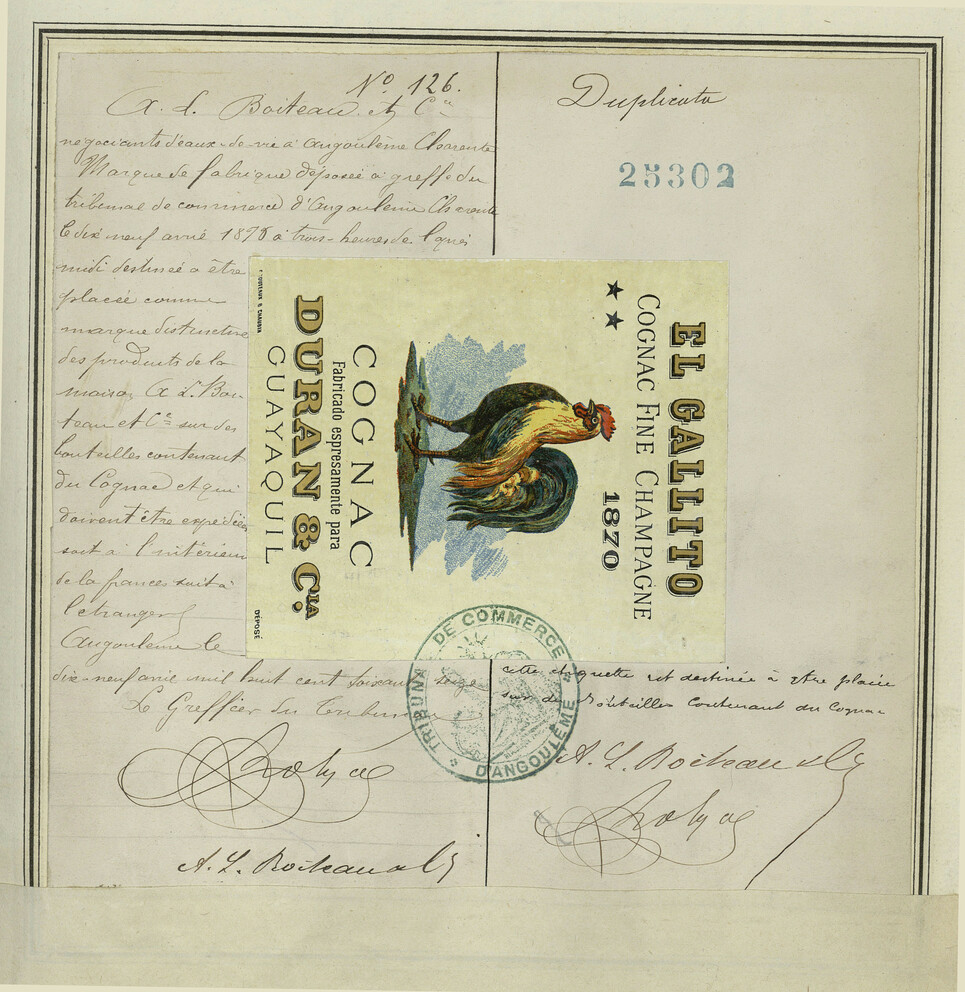 No. 126.
A. L. Boiteau et Cie
négociants d'eaux-de-vie à Angoulême Charente
Marque de fabrique déposée a greffe du
tribunal de commerce d'Angoulême Charente
le dix neuf avril 1876 à trois-heures de l'après
midi destinée a être
placée comme
marque distinctive
des produits de la
maison A L. Boi-
teau et Cie sur des
bouteilles contenant
du Cognac et qui
doivent être expédiées
soit à l'intérieur
de la france soit à
l'etranger
Angoulême le
dix-neuf avril mil huit cent soixante seize
Le Greffier du Tribunal
A. L. Boiteau & Cie
Duplicata
25302
EL GALLITO
COGNAC FINE CHAMPAGNE
★★ 1870
COGNAC
Fabricado espresamente para
DURAN & CIA.
GUAYAQUIL
DÉPOSÉ
TRIBUNAL DE COMMERCE
D'ANGOULÊME
cette etiquette est destinée à etre placée
sur des Bouteilles contenant du Cognac
A. L. Boiteau & Cie